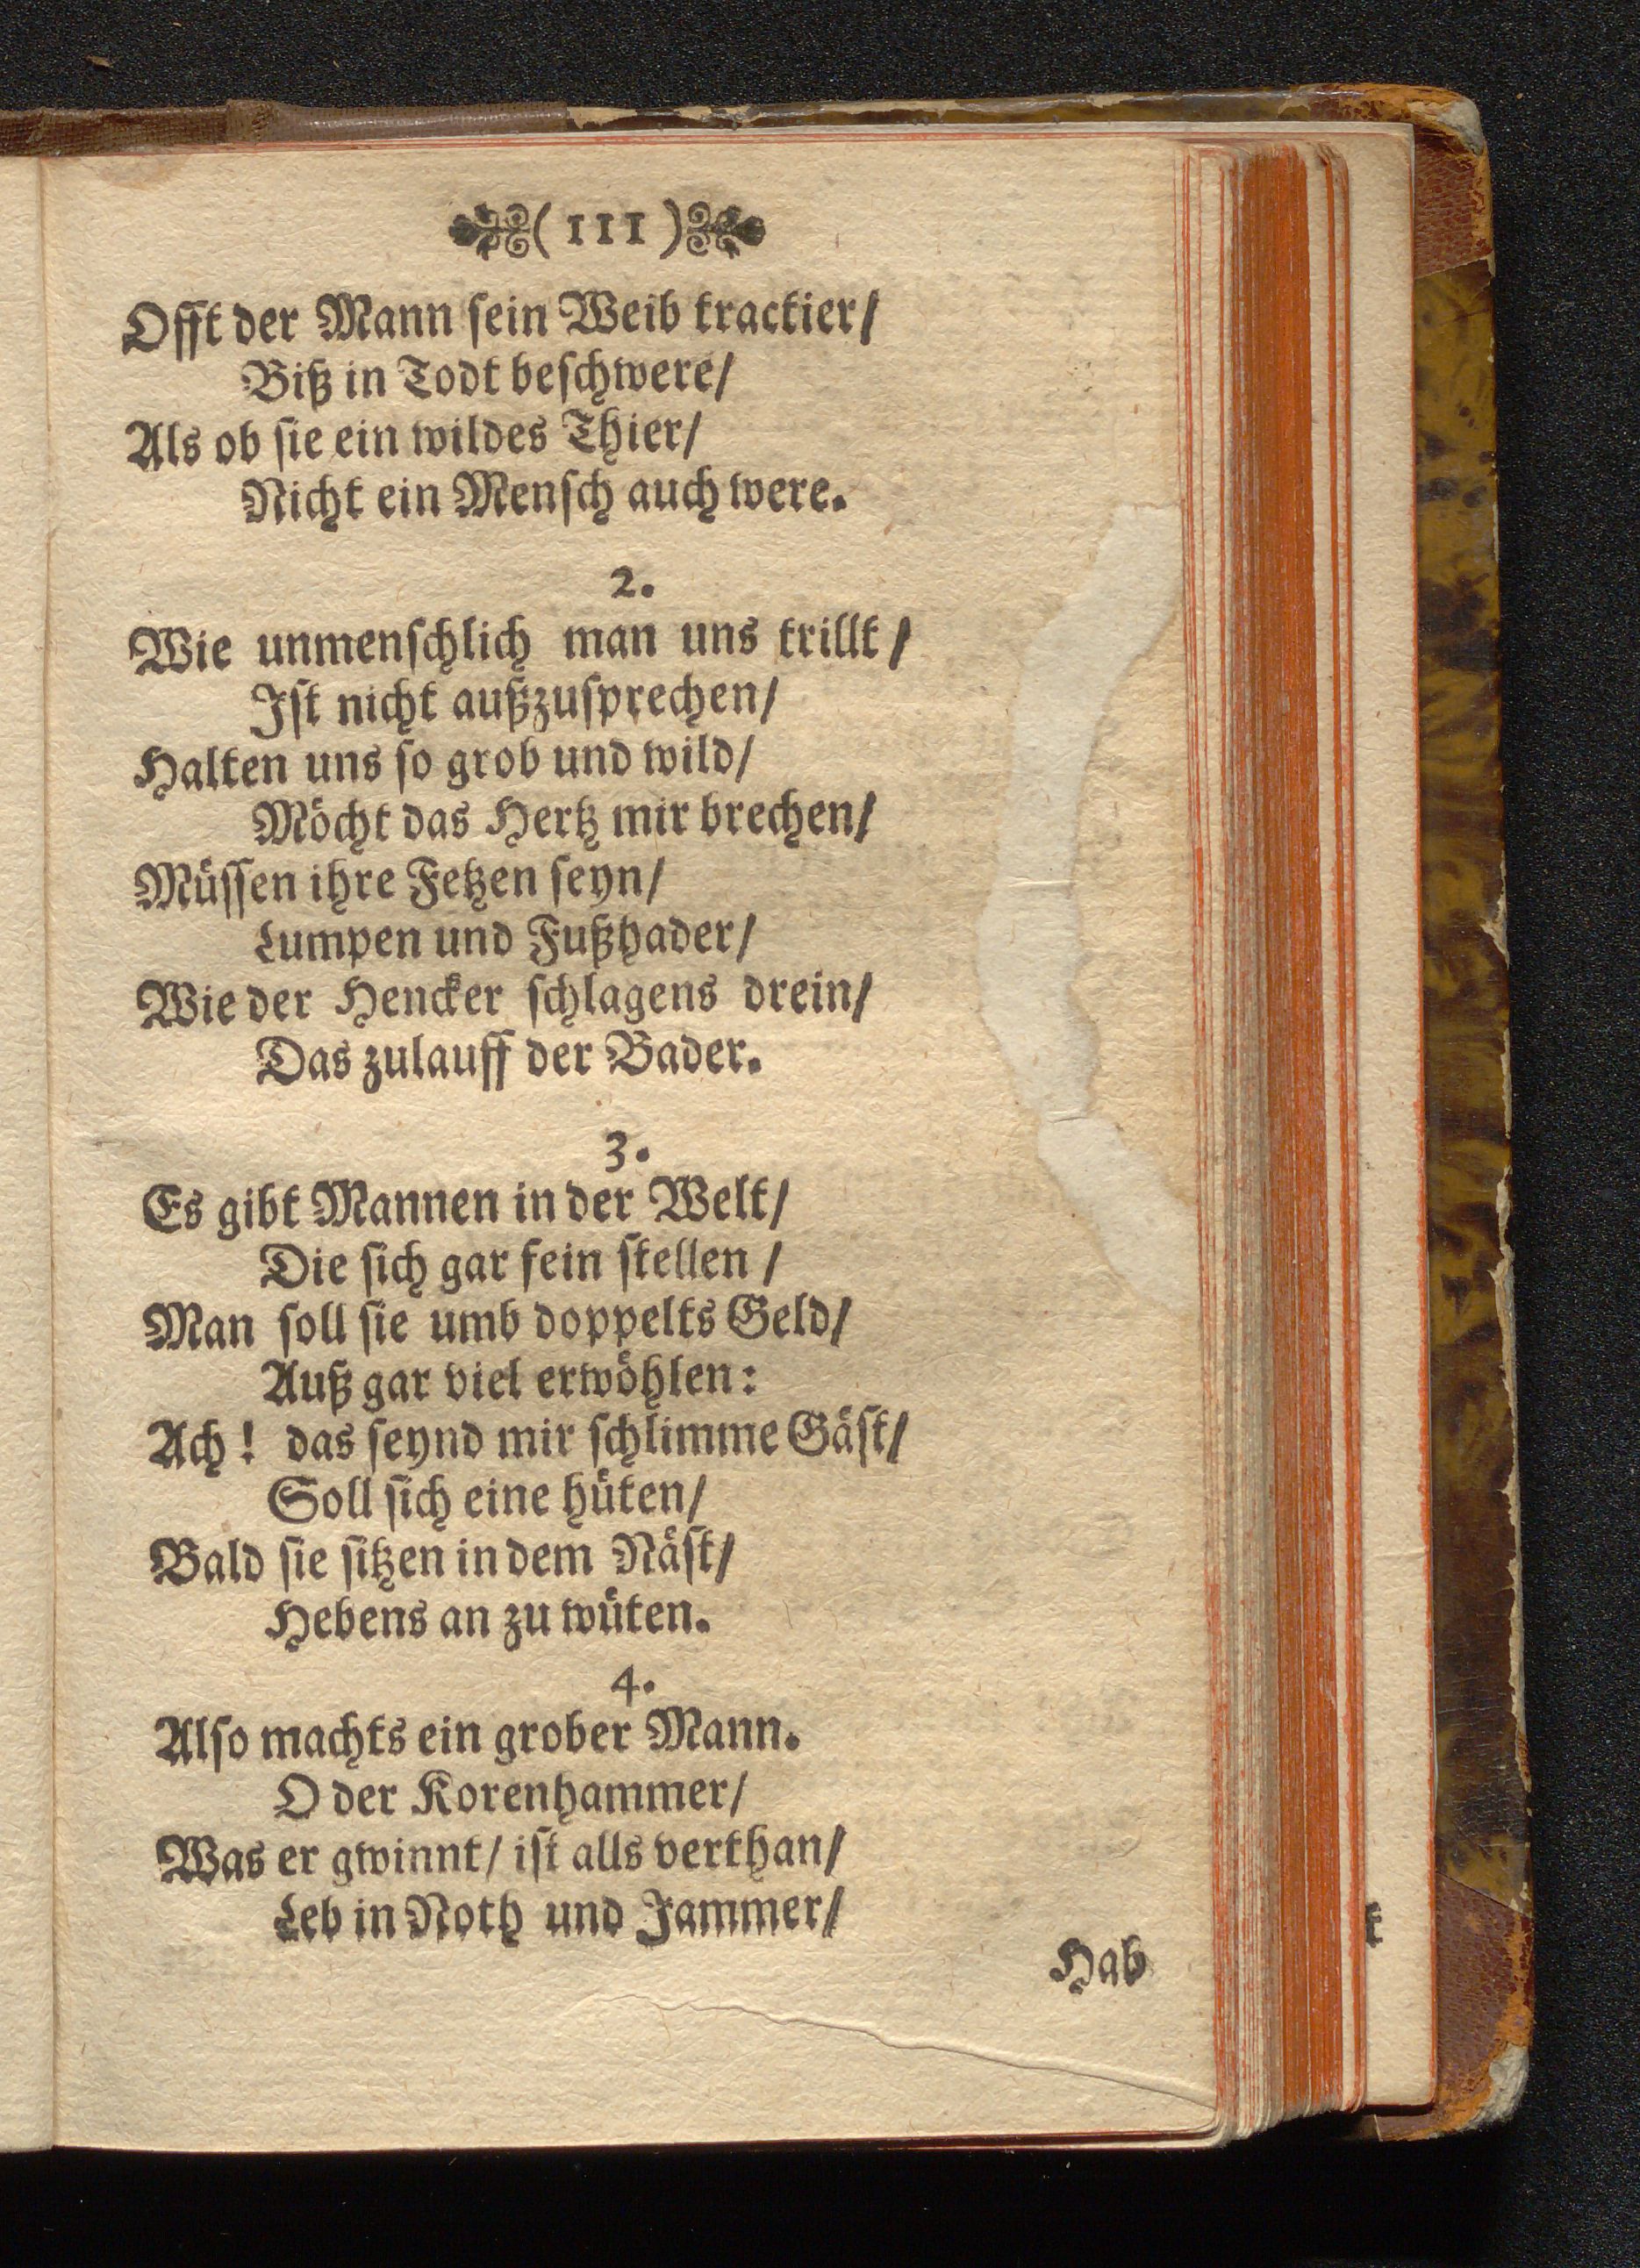 ( 111 )
Offt der Mann sein Weib tractier/
Biß in Todt beschwere/
Als ob sie ein wildes Thier/
Nicht ein Mensch auch were.
2.
Wie unmenschlich man uns trillt/
Ist nicht außzusprechen/
Halten uns so grob und wild/
Möcht das Hertz mir brechen/
Müssen ihre Fetzen seyn/
Lumpen und Fußhader/
Wie der Hencker schlagens drein/
Das zulauff der Bader.
3.
Es gibt Mannen in der Welt/
Die sich gar fein stellen /
Man soll sie umb doppelts Geld/
Auß gar viel erwöhlen:
Ach! das seynd mir schlimme Gäst/
Soll sich eine hüten/
Bald sie sitzen in dem Näst/
Hebens an zu wüten.
4.
Also machts ein grober Mann.
O der Korenhammer/
Was er gwinnt/ ist alls verthan/
Leb in Noth und Jammer/
Hab